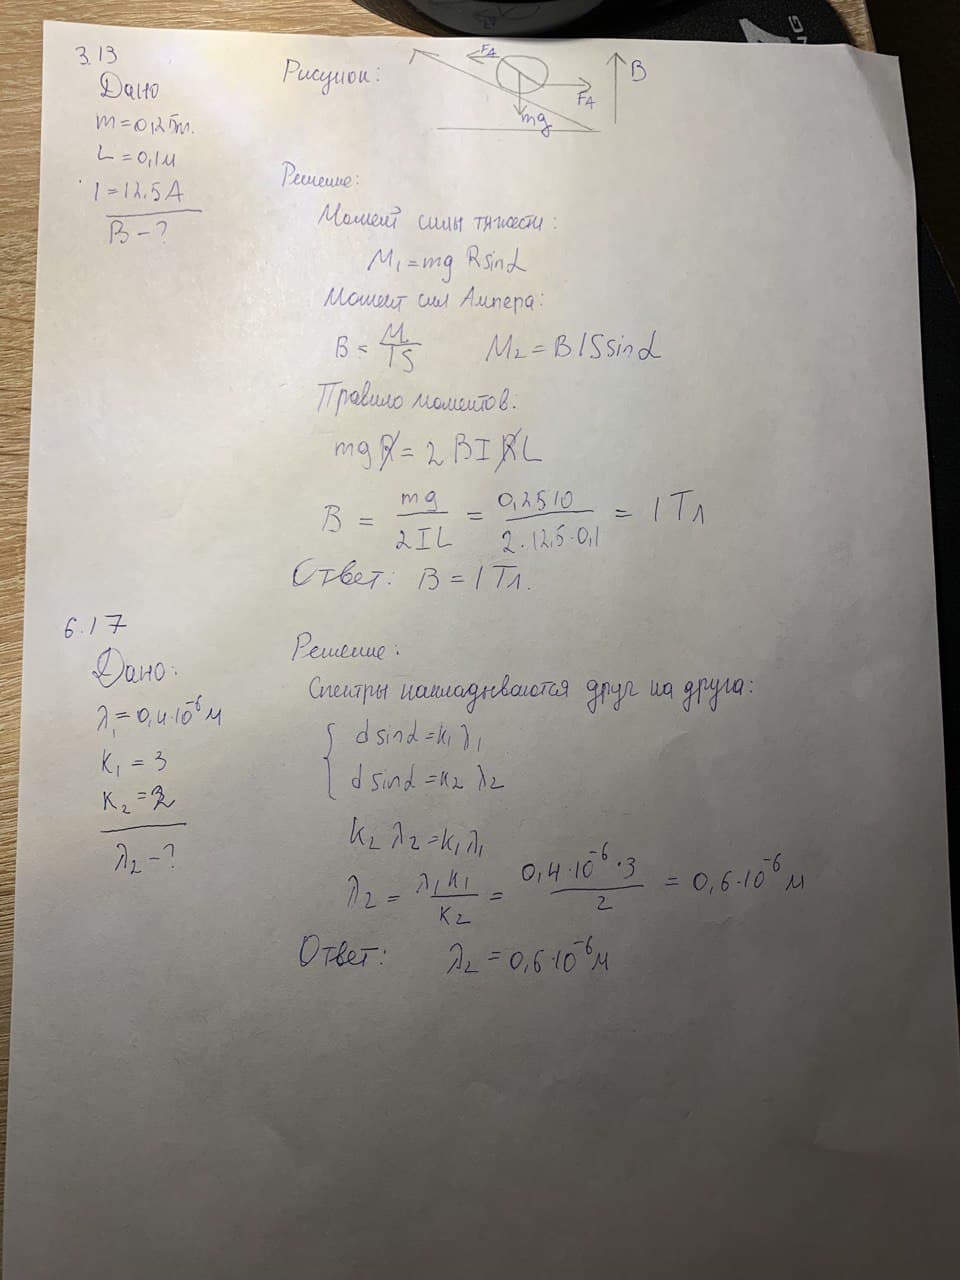 3.13
Дано
m=0,25кг.
L=0,1м
I=12.5A
B-?
Рисунок:
FA
FA
mg
B
Решение:
Момент силы тяжести:
M₁=mg Rsinα
Момент сил Ампера:
B = M/IS M₂=BISsinα
Правило моментов:
mgR=2BIRL
B = mg/2IL = 0,25·10/2·12,5·0,1 = 1Тл
Ответ: B=1Тл.
6.17
Дано:
λ₁=0,4·10⁻⁶м
K₁=3
K₂=2
λ₂-?
Решение:
Спектры накладываются друг на друга:
dsinα=K₁λ₁
dsinα=K₂λ₂
K₂λ₂=K₁λ₁
λ₂ = λ₁K₁/K₂ = 0,4·10⁻⁶·3/2 = 0,6·10⁻⁶м
Ответ: λ₂=0,6·10⁻⁶м
NG